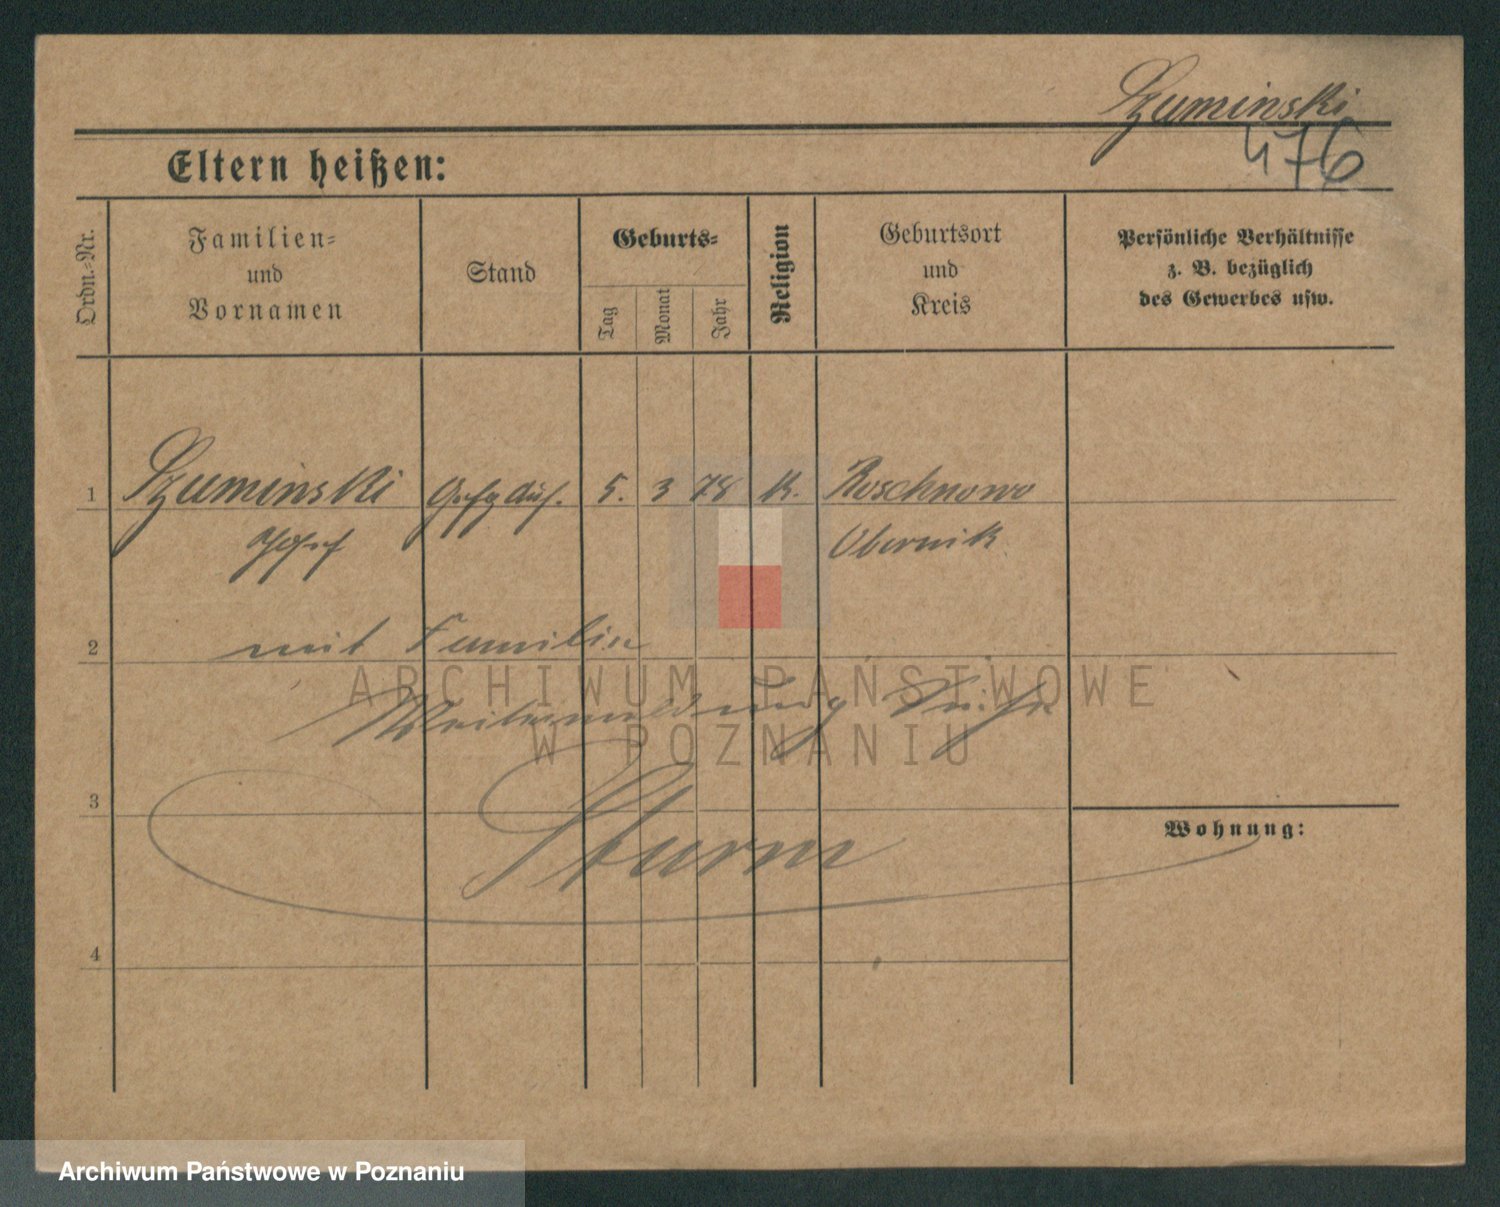 Szuminski
476
Eltern heißen:
Ordn.-Nr.
Familien-
und
Vornamen
Stand
Geburts-
Tag
Monat
Jahr
Religion
Geburtsort
und
Kreis
Persönliche Verhältnisse
z. B. bezüglich
des Gewerbes usw.
1 Szuminski Gefg Auf. 5. 3 78 K. Roschnowo
Josef Obernik
2 mit Familie
ARCHIWUM PAŃSTWOWE
W POZNANIU
3
Sturm
Wohnung:
4
Archiwum Państwowe w Poznaniu